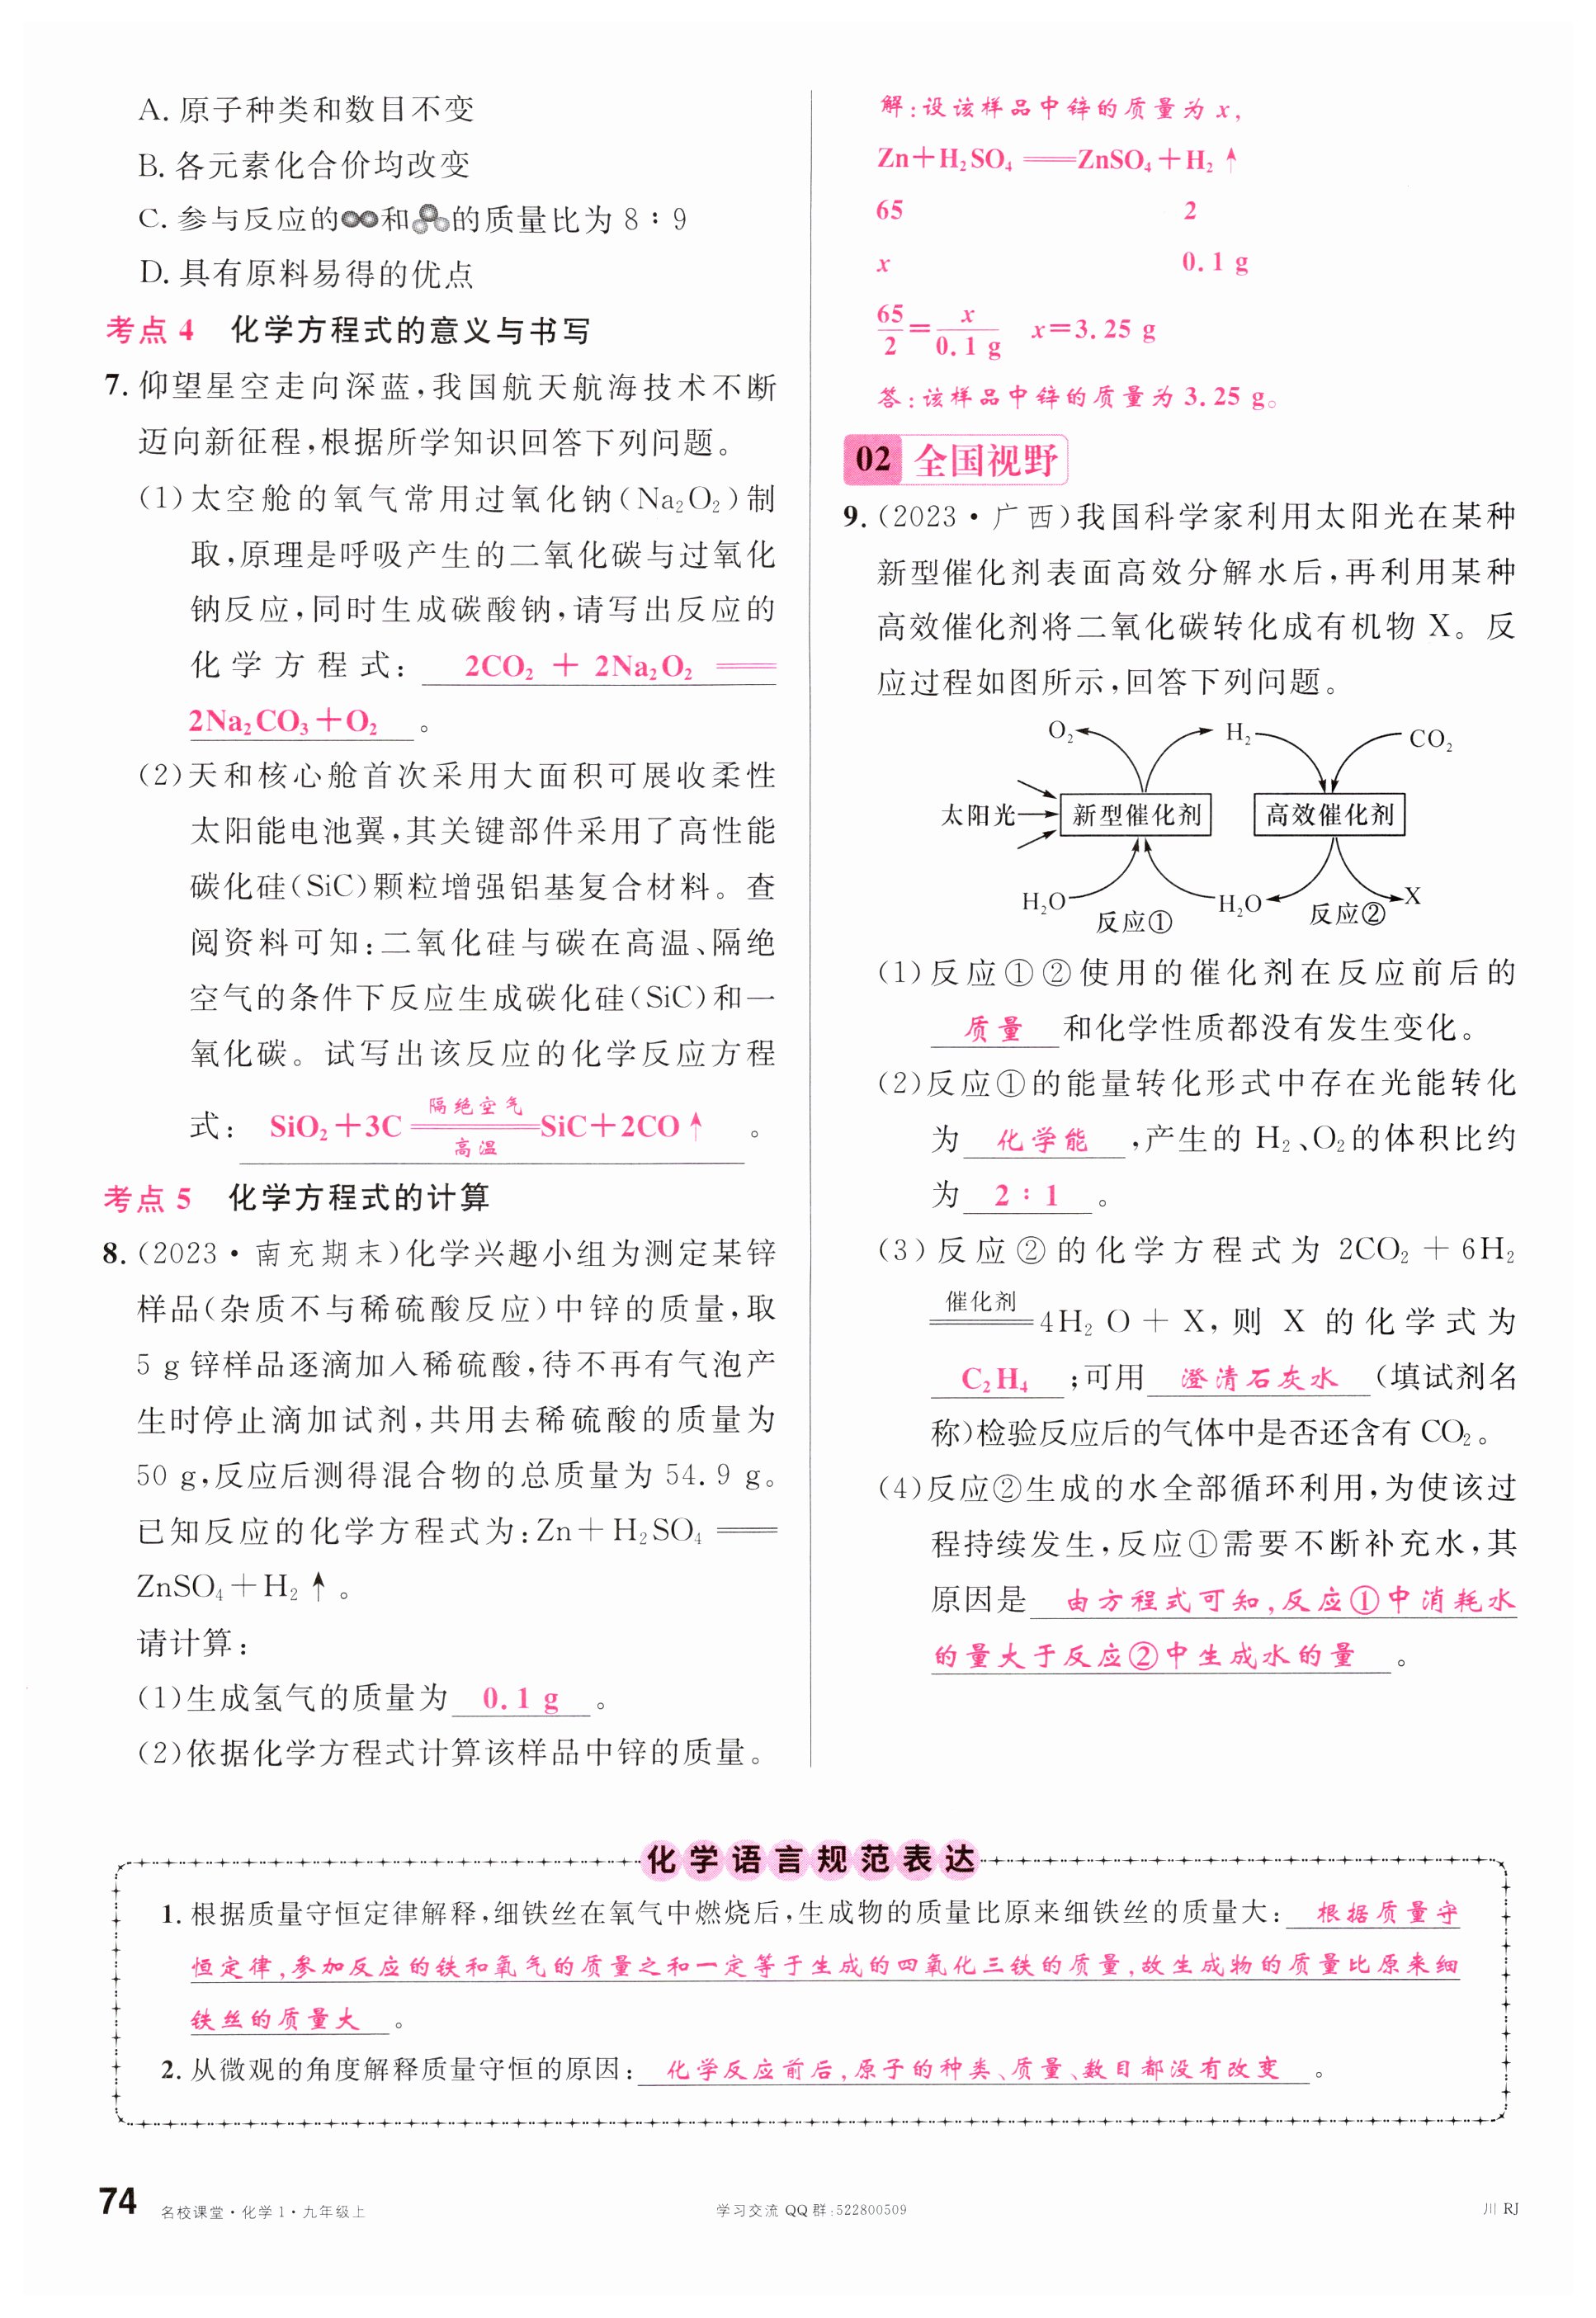 A. 原子种类和数目不变
B. 各元素化合价均改变
C. 参与反应的和的质量比为 8∶9
D. 具有原料易得的优点
考点 4 化学方程式的意义与书写
7. 仰望星空走向深蓝,我国航天航海技术不断
迈向新征程,根据所学知识回答下列问题。
(1)太空舱的氧气常用过氧化钠(Na₂O₂)制
取,原理是呼吸产生的二氧化碳与过氧化
钠反应,同时生成碳酸钠,请写出反应的
化学方程式: 2CO₂ + 2Na₂O₂ ══
2Na₂CO₃+O₂ 。
(2)天和核心舱首次采用大面积可展收柔性
太阳能电池翼,其关键部件采用了高性能
碳化硅(SiC)颗粒增强铝基复合材料。查
阅资料可知:二氧化硅与碳在高温、隔绝
空气的条件下反应生成碳化硅(SiC)和一
氧化碳。试写出该反应的化学反应方程
隔绝空气
式: SiO₂+3C ══ SiC+2CO↑ 。
高温
考点 5 化学方程式的计算
8. (2023·南充期末)化学兴趣小组为测定某锌
样品(杂质不与稀硫酸反应)中锌的质量,取
5 g 锌样品逐滴加入稀硫酸,待不再有气泡产
生时停止滴加试剂,共用去稀硫酸的质量为
50 g,反应后测得混合物的总质量为 54.9 g。
已知反应的化学方程式为:Zn+H₂SO₄ ══
ZnSO₄+H₂↑。
请计算:
(1)生成氢气的质量为 0.1 g 。
(2)依据化学方程式计算该样品中锌的质量。
解:设该样品中锌的质量为 x,
Zn+H₂SO₄ ══ ZnSO₄+H₂↑
65 2
x 0.1 g
65/2=x/0.1 g x=3.25 g
答:该样品中锌的质量为 3.25 g。
02 全国视野
9. (2023·广西)我国科学家利用太阳光在某种
新型催化剂表面高效分解水后,再利用某种
高效催化剂将二氧化碳转化成有机物 X。反
应过程如图所示,回答下列问题。
O₂ H₂ CO₂
太阳光 新型催化剂 高效催化剂
H₂O 反应① H₂O 反应② X
(1)反应①②使用的催化剂在反应前后的
质量 和化学性质都没有发生变化。
(2)反应①的能量转化形式中存在光能转化
为 化学能 ,产生的 H₂、O₂的体积比约
为 2∶1 。
(3)反应②的化学方程式为 2CO₂ + 6H₂
催化剂
══ 4H₂O + X,则 X 的化学式为
C₂H₄ ;可用 澄清石灰水 (填试剂名
称)检验反应后的气体中是否还含有 CO₂。
(4)反应②生成的水全部循环利用,为使该过
程持续发生,反应①需要不断补充水,其
原因是 由方程式可知,反应①中消耗水
的量大于反应②中生成水的量 。
化学语言规范表达
1. 根据质量守恒定律解释,细铁丝在氧气中燃烧后,生成物的质量比原来细铁丝的质量大: 根据质量守
恒定律,参加反应的铁和氧气的质量之和一定等于生成的四氧化三铁的质量,故生成物的质量比原来细
铁丝的质量大 。
2. 从微观的角度解释质量守恒的原因: 化学反应前后,原子的种类、质量、数目都没有改变 。
74 名校课堂·化学1·九年级上 学习交流 QQ 群:522800509 川 RJ